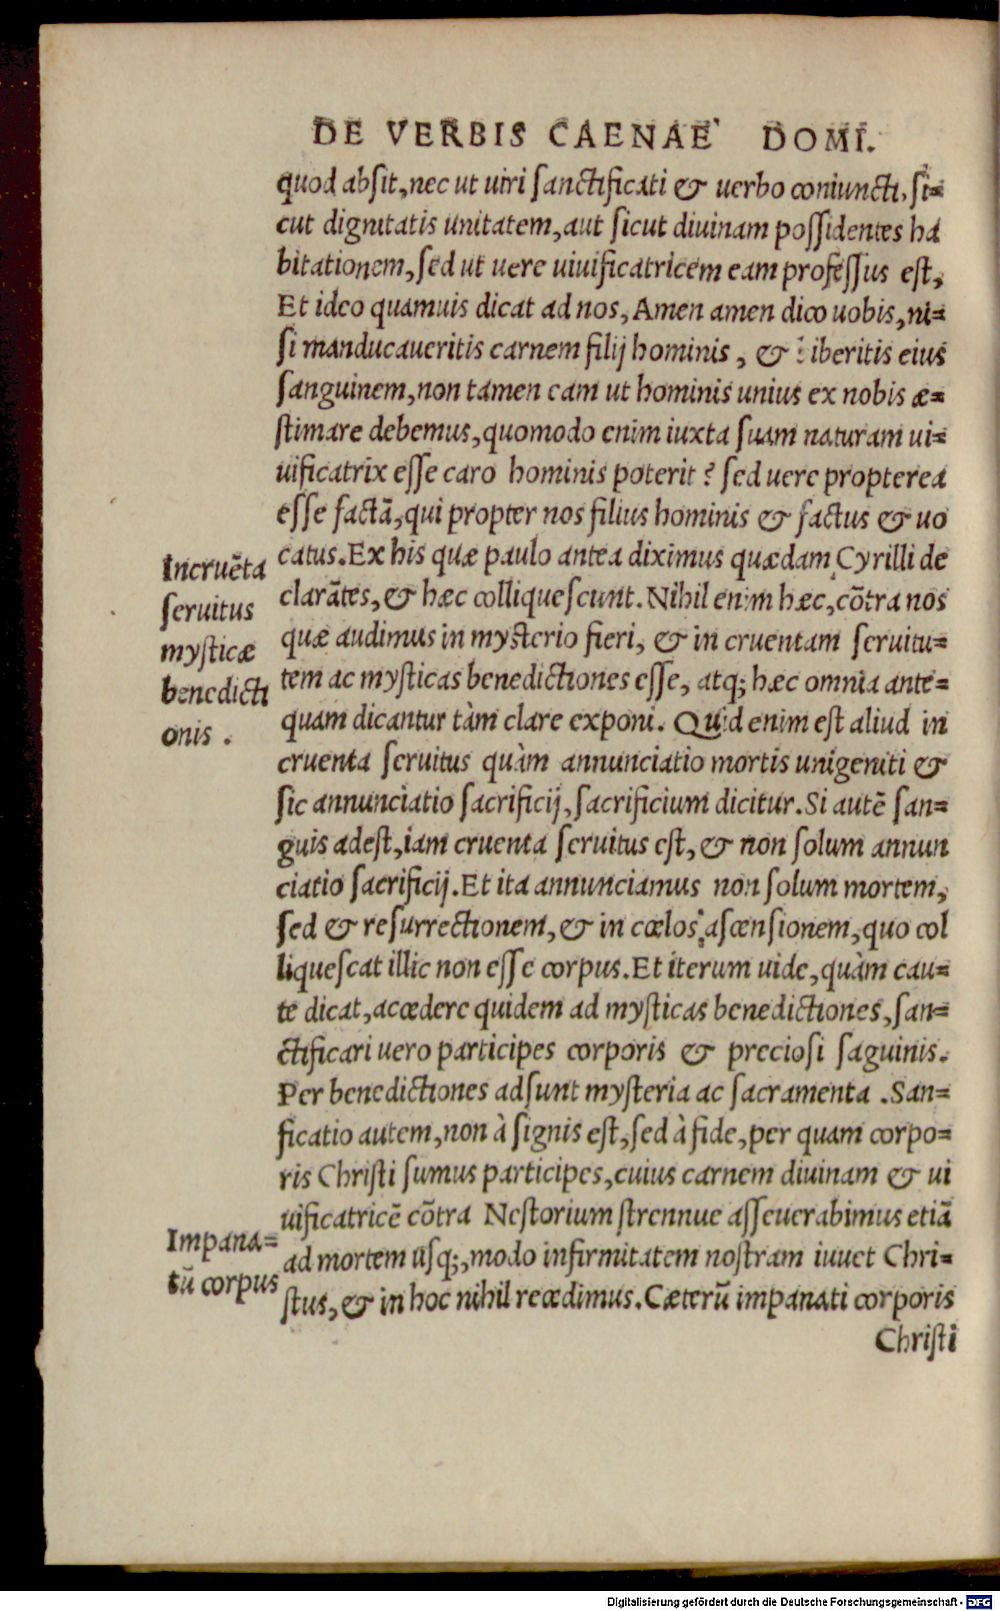 DE VERBIS CAENAE DOMI.
quod absit, nec ut uiri sanctificati & uerbo coniuncti, si=
cut dignitatis unitatem, aut sicut diuinam possidentes ha
bitationem, sed ut uere uiuificatricem eam professus est,
Et ideo quamuis dicat ad nos, Amen amen dico uobis, ni=
si manducaueritis carnem filij hominis, & biberitis eius
sanguinem, non tamen eam ut hominis unius ex nobis æ=
stimare debemus, quomodo enim iuxta suam naturam ui=
uificatrix esse caro hominis poterit? sed uere propterea
esse factã, qui propter nos filius hominis & factus & uo
catus. Ex his quæ paulo antea diximus quædam Cyrilli de
clarãtes, & hæc colliquescunt. Nihil enim hæc, cõtra nos
quæ audimus in mysterio fieri, & in cruentam seruitu=
tem ac mysticas benedictiones esse, atq; hæc omnia ante=
quam dicantur tàm clare exponi. Quid enim est aliud in
cruenta seruitus quàm annunciatio mortis unigeniti &
sic annunciatio sacrificij, sacrificium dicitur. Si autẽ san=
guis adest, iam cruenta seruitus est, & non solum annun
ciatio sacrificij. Et ita annunciamus non solum mortem,
sed & resurrectionem, & in cœlos ascensionem, quo col
liquescat illic non esse corpus. Et iterum uide, quàm cau=
te dicat, accedere quidem ad mysticas benedictiones, san=
ctificari uero participes corporis & preciosi saguinis.
Per benedictiones adsunt mysteria ac sacramenta. San=
ficatio autem, non à signis est, sed à fide, per quam corpo=
ris Christi sumus participes, cuius carnem diuinam & ui
uificatricẽ cõtra Nestorium strennue asseuerabimus etiã
ad mortem usq;, modo infirmitatem nostram iuuet Chri=
stus, & in hoc nihil recedimus. Cæterũ impanati corporis
Christi
Incruẽta
seruitus
mysticæ
benedicti
onis.
Impana=
tũ corpus
Digitalisierung gefördert durch die Deutsche Forschungsgemeinschaft - DFG